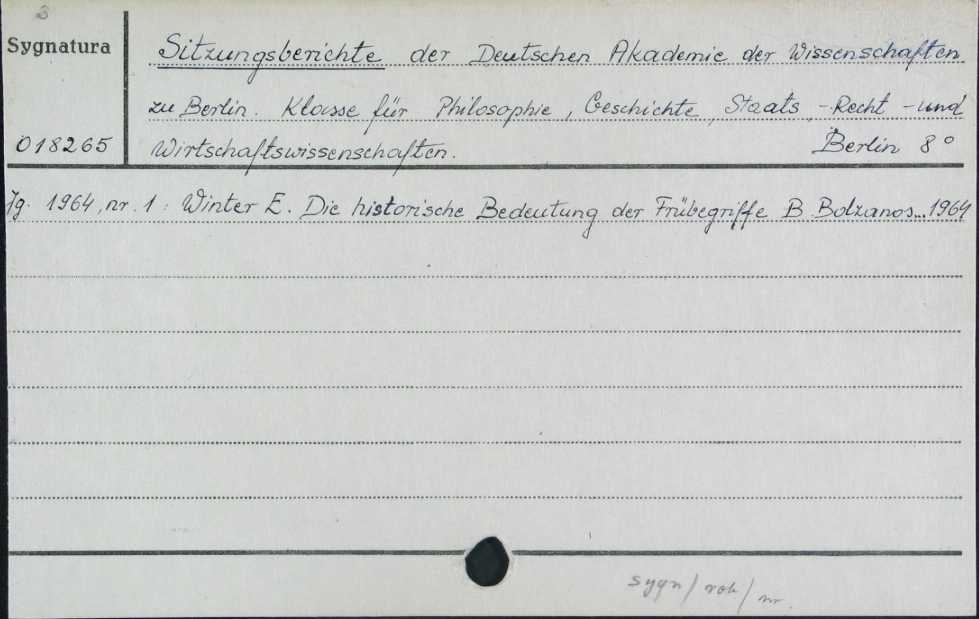 Sygnatura
018265
Sitzungsberichte der Deutschen Akademie der Wissenschaften
zu Berlin. Klasse für Philosophie, Geschichte, Staats -Recht -und
Wirtschaftswissenschaften. Berlin 8°
Jg. 1964, nr. 1: Winter E. Die historische Bedeutung der Frübegriffe B. Bolzanos...1964
sygn/rok/nr.